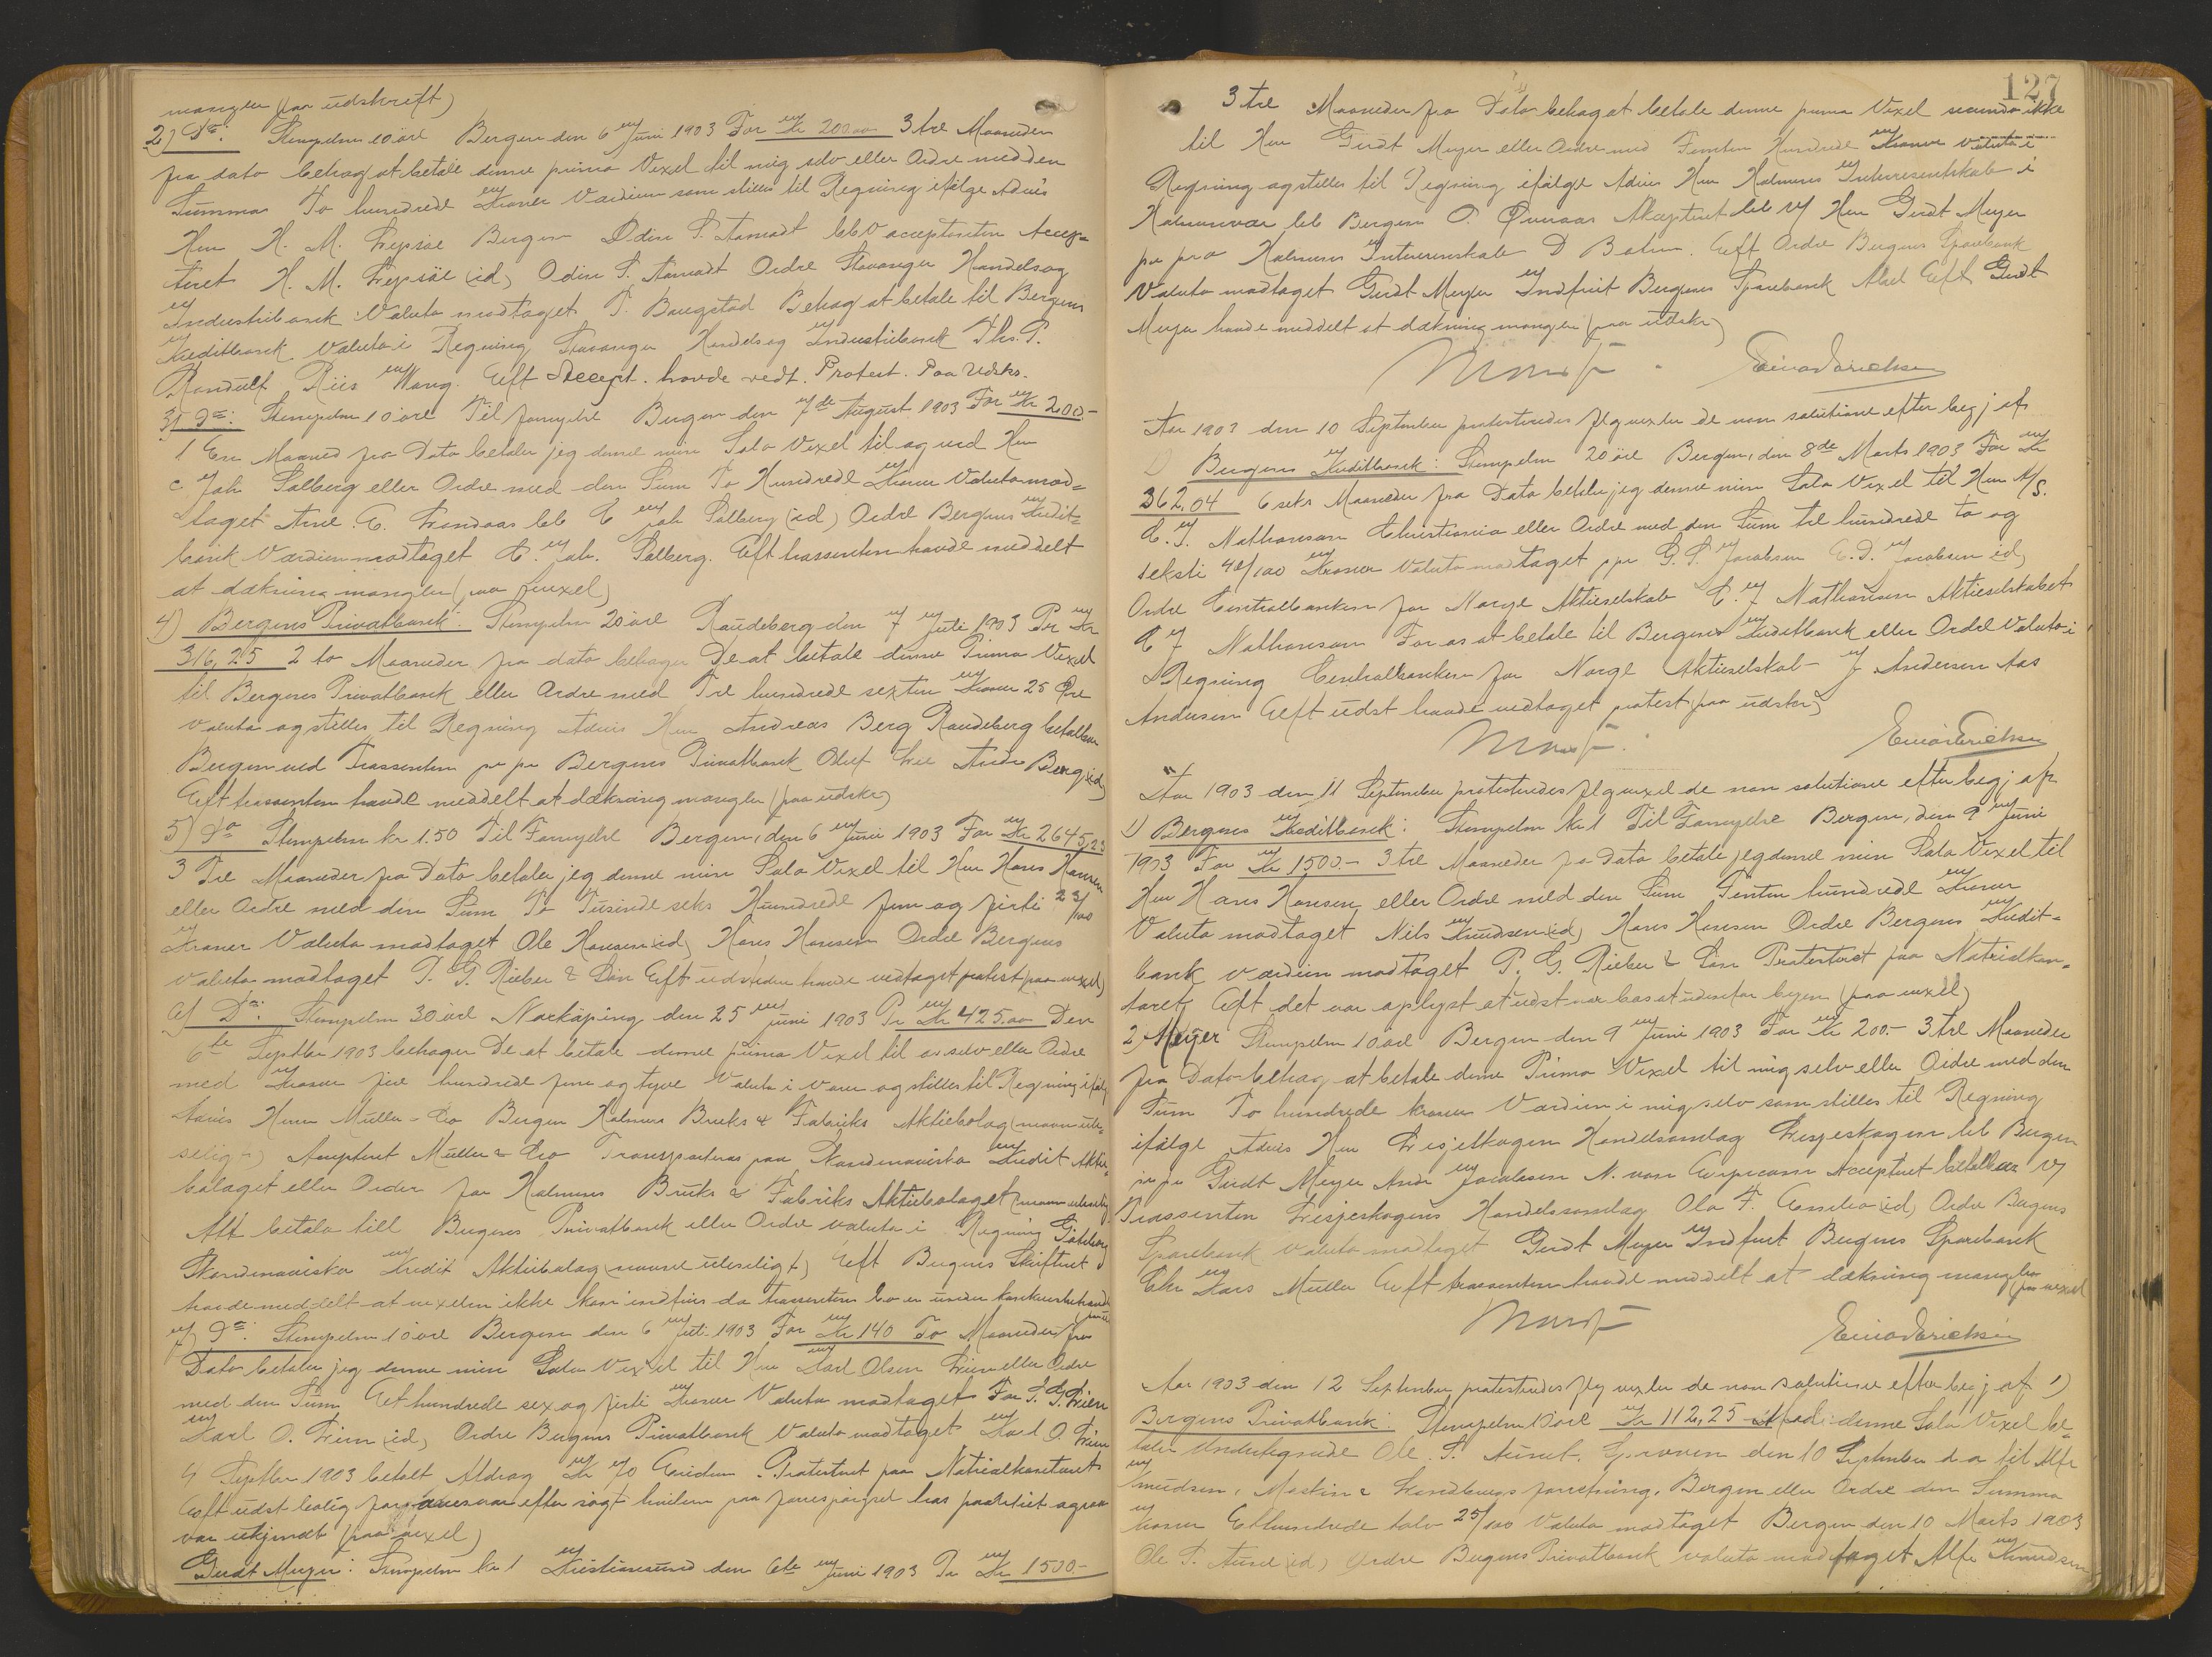 mangler (paa udskrift)
2) Do: Stempelm 10 öre Bergen den 6 Juni 1903 For Kr 200.00 3 tre Maaneder
fra dato behag at betale denne prima Vexel til mig selv eller Ordre med den
Summa To hundrede Kroner Værdien som stilles til Regning ifølge Advis
Herr H. M. Lepsöe Bergen Odin S. Aamodt acceptanten Accep=
teret H. M. Lepsöe (id) Odin S. Aamodt Ordre Stavanger Handels og
Industribank Valuta modtaget T. Baugstad Behag at betale til Bergens
Kreditbank Valuta i Regning Stavanger Handels og Industribank Ths. S.
Randulf Riis Wang. Eft Accept. havde vedt. Protest. Paa Udskr.
3) Do: Stempelm 10 öre Til fornyelse Bergen den 7de August 1903 For Kr 200-
1 En Maaned fra Dato betaler jeg denne min Sola Vexel til og ved Herr
C Joh Salberg eller Ordre med den Sum To Hundrede Kroner Valuta mod=
taget Arne E. C Joh Salberg (id) Ordre Bergens Kredit=
bank Værdien modtaget C. Joh. Salberg. Eft trassenten havde meddelt
at dækning mangler (paa vexel)
4) Bergens Privatbank: Stempelm 20 öre Raudeberg den 7 Juli 1903 For Kr
316,25 2 to Maaneder fra dato behager De at betale denne Prima Vexel
til Bergens Privatbank eller Ordre med Tre hundrede sexten Kroner 25 Øre
Valuta og stilles til Regning Advis Herr Andreas Berg Raudeberg betalbar
Bergen ved Trassenten pr pr Bergens Privatbank Oluf Lie Andr Berg (id)
Eft trassenten havde meddelt at dækning mangler (paa udskr)
5) Do Stempelm kr 1.50 Til Fornyelse Bergen, den 6 Juni 1903 For Kr 2645,23
3 Tre Maaneder fra Dato betaler jeg denne min Sola Vexel til Herr Hans Hansen
eller Ordre med den Sum To Tusinde seks Hundrede fem og firti 23/100
Kroner Valuta modtaget Ole Hansen (id) Hans Hansen Ordre Bergens
Valuta modtaget P. G. Rieber & Sön Eft udstederen havde vedtaget protest (paa vexel)
6) Do: Stempelm 30 öre Norköping den 25 juni 1903 Pr Kr 425.00 Den
6te Septbr 1903 behager De at betale denne prima Vexel til os selv eller Ordre
med Kroner fire hundrede fem og tyve Valuta i varer og stilles til Regning ifølg
Advis Herrn Müller & Co Bergen Holmens Bruks & Fabriks Aktiebolag (navn ulæ=
seligt) Accepteret Müller & Co Transporteras paa Skandinaviska Kredit Aktie=
bolaget eller Order for Holmens Bruks & Fabriks Aktiebolaget (navn ulæseligt)
Att betala till Bergens Privatbank eller Ordre valuta i Regning Göteborg
Skandinaviska Kredit Aktiebolag (navne ulæseligt) Eft Bergens Skifteret
havde meddelt at vexelen ikke kan indfries da trassenten bo er under konkursbehand
7) Do: Stempelm 10 öre Bergen den 6 Juli 1903 For Kr 140 To Maaneder fra
Dato betaler jeg denne min Sola Vexel til Herr Karl Olsen Lien eller Ordre
med den Sum Et hundrede sex og firti Kroner Valuta modtaget For S. S. Lien
Karl O. Lien (id) Ordre Bergens Privatbank Valuta modtaget Karl O. Lien
4 Septbr 1903 betalt Afdrag Kr 70 Protesteret paa Notrialkontoret
Eft udst bolig forgjæves var efter søgt hvilken paa forespørgsel hos politiet ogsaa
var ukjendt (paa vexel)
Gerdt Meyer: Stempelm kr 1 Kristianssund den 6te Juni 1903 Pr Kr 1500-
127
3 tre Maaneder fra Dato behag at betale denne prima Vexel secunda ikke
til Herr Gerdt Meyer eller Ordre med Femten Hundrede Kroner valuta i
Regning og stilles til Regning ifølge Advis Herr Holmens Interessentskab i
Bergen O. Accepteret Herr Gerdt Meyer
pr pro Holmens Interessentskab D Eft Ordre Bergens Sparebank
Valuta modtaget Gerdt Meyer Indfriet Bergens Sparebank Eft Gerdt
Meyer havde meddelt at dækning mangler (paa udskr)
Einar Erichsen
Aar 1903 den 10 September protesteredes flg vexler de non solutione efter begj af
1) Bergens Kreditbank: Stempelm 20 öre Bergen, den 8de Marts 1903 For Kr
362.04 6 seks Maaneder fra Dato betaler jeg denne min Sola Vexel til Herr A/S.
C. J. Nathansen Christiania eller Ordre med den Sum tre hundrede to og
seksti 4/100 Kroner Valuta modtaget ppr G. S. Jacobsen E. D. Jacobsen (id)
Ordre Centralbanken for Norge Aktieselskab C. J Nathansen Aktieselskabet
C J Nathansen For os at betale til Bergens Kreditbank eller Ordre Valuta i
Regning Centralbanken for Norge Aktieselskab J Andersen Aas
Andersen Eft udst havde vedtaget protest (paa udskr)
Einar Erichsen
Aar 1903 den 11 September protesteredes flg vexel de non solutione efter begj af
1) Bergens Kreditbank: Stempelm kr 1 Til Fornyelse Bergen, den 9 Juni
1903 For Kr 1500.- 3 tre Maaneder fra Dato betaler jeg denne min Sola Vexel til
Herr Hans Hansen eller Ordre med den Sum Femten hundrede Kroner
Valuta modtaget Nils Knudsen (id) Hans Hansen Ordre Bergens Kredit=
bank Værdien modtaget P. G. Rieber & Sön Protesteret paa Notrialkon=
toret Eft det var oplyst at udst var bosat udenfor byen (paa vexel)
2) Meyer Stempelm 10 öre Bergen den 9 Juni 1903 For Kr 200.- 3 tre Maaneder
fra Dato behag at betale denne Prima Vexel til mig selv eller Ordre med den
Sum To hundrede kroner Værdien i mig selv som stilles til Regning
ifølge Advis Herr Handelsomlag Bergen
pr pr Gerdt Meyer Andr Jacobsen N. von Erpecom Accepteret betalbar v/
Trassenten Handelsomlag Ola F. (id) Ordre Bergens
Sparebank Valuta modtaget Gerdt Meyer Indfriet Bergens Sparebank
Chr Lars Müller Eft trassenten havde meddelt at dækning mangler (paa vexel
Einar Erichsen
Aar 1903 den 12 September protesteredes flg vexler de non solutione efter begj af 1)
Bergens Privatbank: Stempelm 10 öre Kr 112,25 Med denne Sola Vexel be=
taler Undertegnede Ole S. den 10 September d a til Alfr
Knudsen, Maskin & Landbrugs forretning, Bergen eller Ordre den Summa
Kroner Ethundrede tolv 25/100 Valuta modtaget Bergen den 10 Marts 1903
Ole S. (id) Ordre Bergens Privatbank valuta modtaget Alfr Knudsen